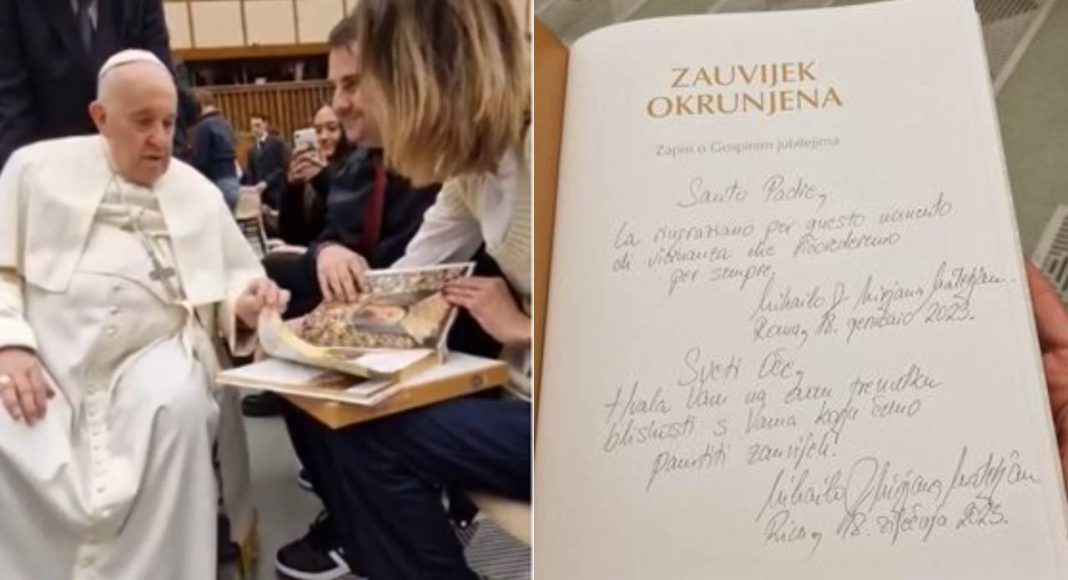 ZAUVIJEK
OKRUNJENA
Zapisi o Gospinim jubilejima
Santo Padre,
La ringraziamo per questo momento
di vicinanza che ricorderemo
per sempre,
Mirjana
Roma, 18. gennaio 2023.
Sveti Oče,
Hvala Vam na ovom trenutku
bliskosti s Vama koju ćemo
pamtiti zauvijek!
Mirjana
18. siječnja 2023.